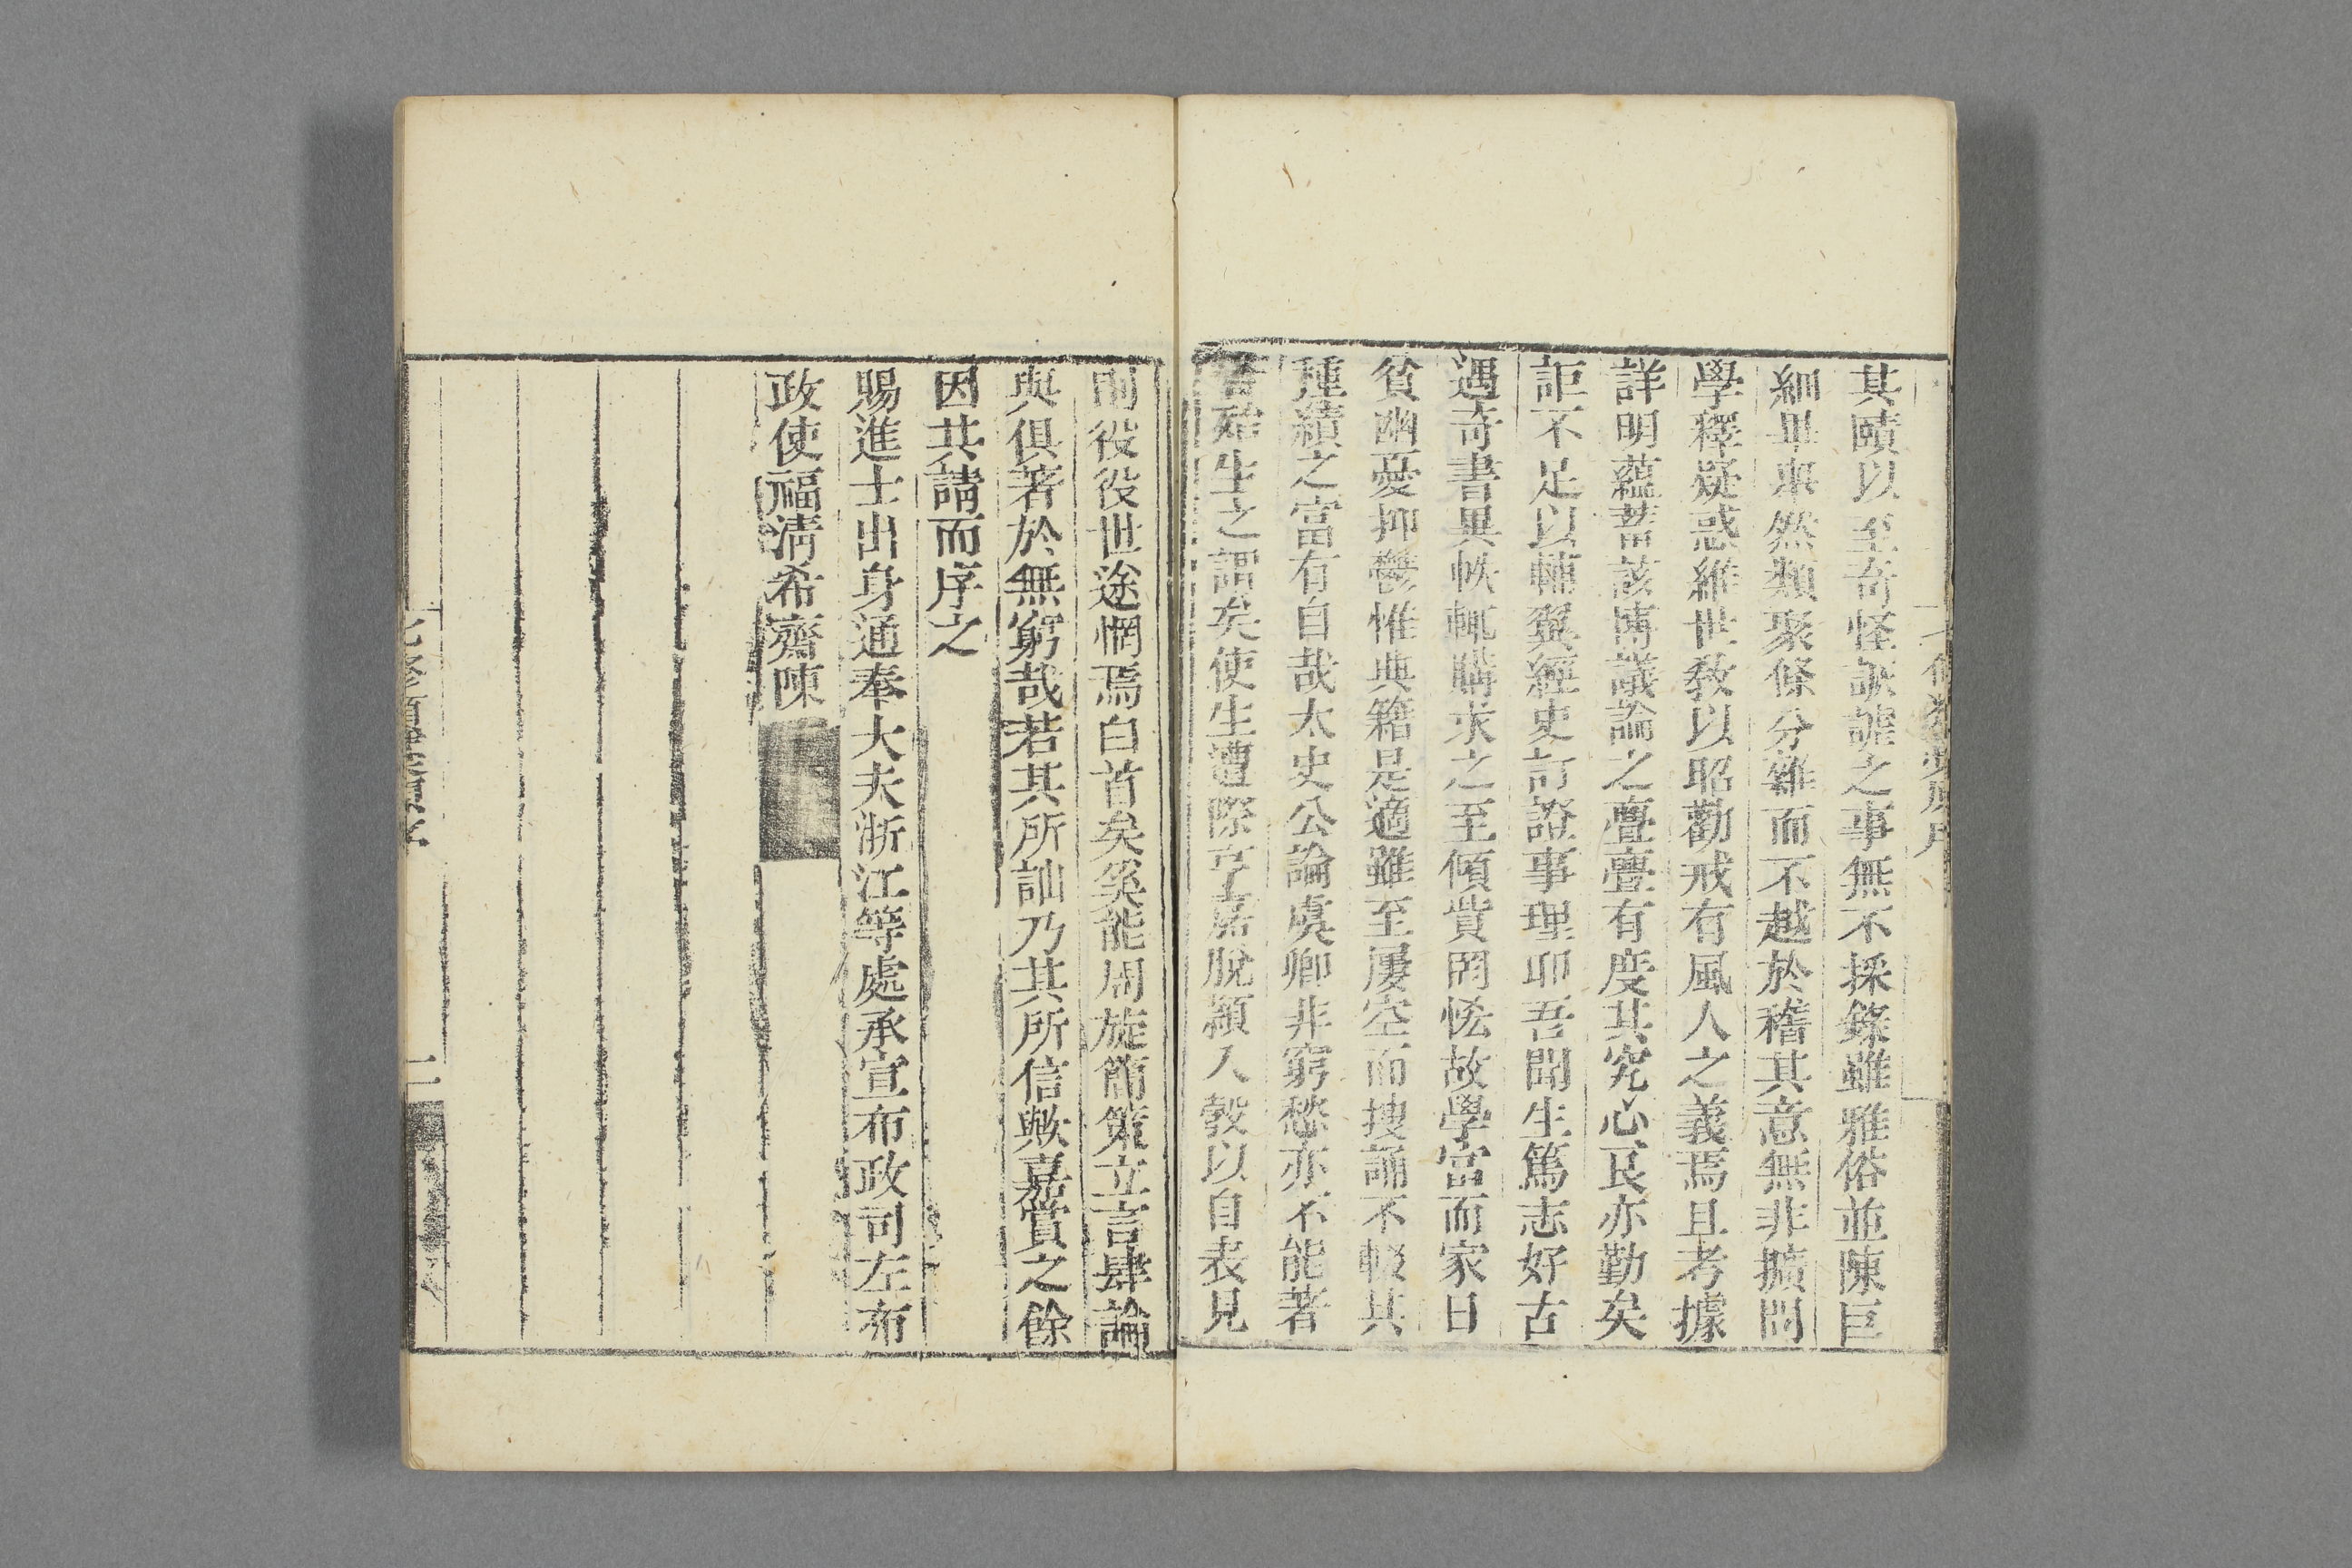 其賾以至奇怪詼謔之事無不採錄雖雅俗並陳巨
細畢舉然類聚條分雜而不越於稽其意無非擴問
學釋疑惑維世敎以昭勸戒有風人之義焉且考據
詳明蘊蓄該博議論之亹亹有度其究心良亦勤矣
詎不足以輔翼經史訂證事理耶吾聞生篤志好古
遇奇書異帙輒購求之至傾貲罔恡故學富而家日
貧幽憂抑鬱惟典籍是適雖至屢空而搜誦不輟其
種績之富有自哉太史公論虞卿非窮愁亦不能著
書殆生之謂矣使生遭際亨嘉脫穎入彀以自表見
則役役世途惘焉白首矣奚能周旋簡策立言肆論
與俱著於無窮哉若其所訕乃其所信歟嘉賞之餘
因其請而序之
賜進士出身通奉大夫浙江等處承宣布政司左布
政使福淸希齋陳
二